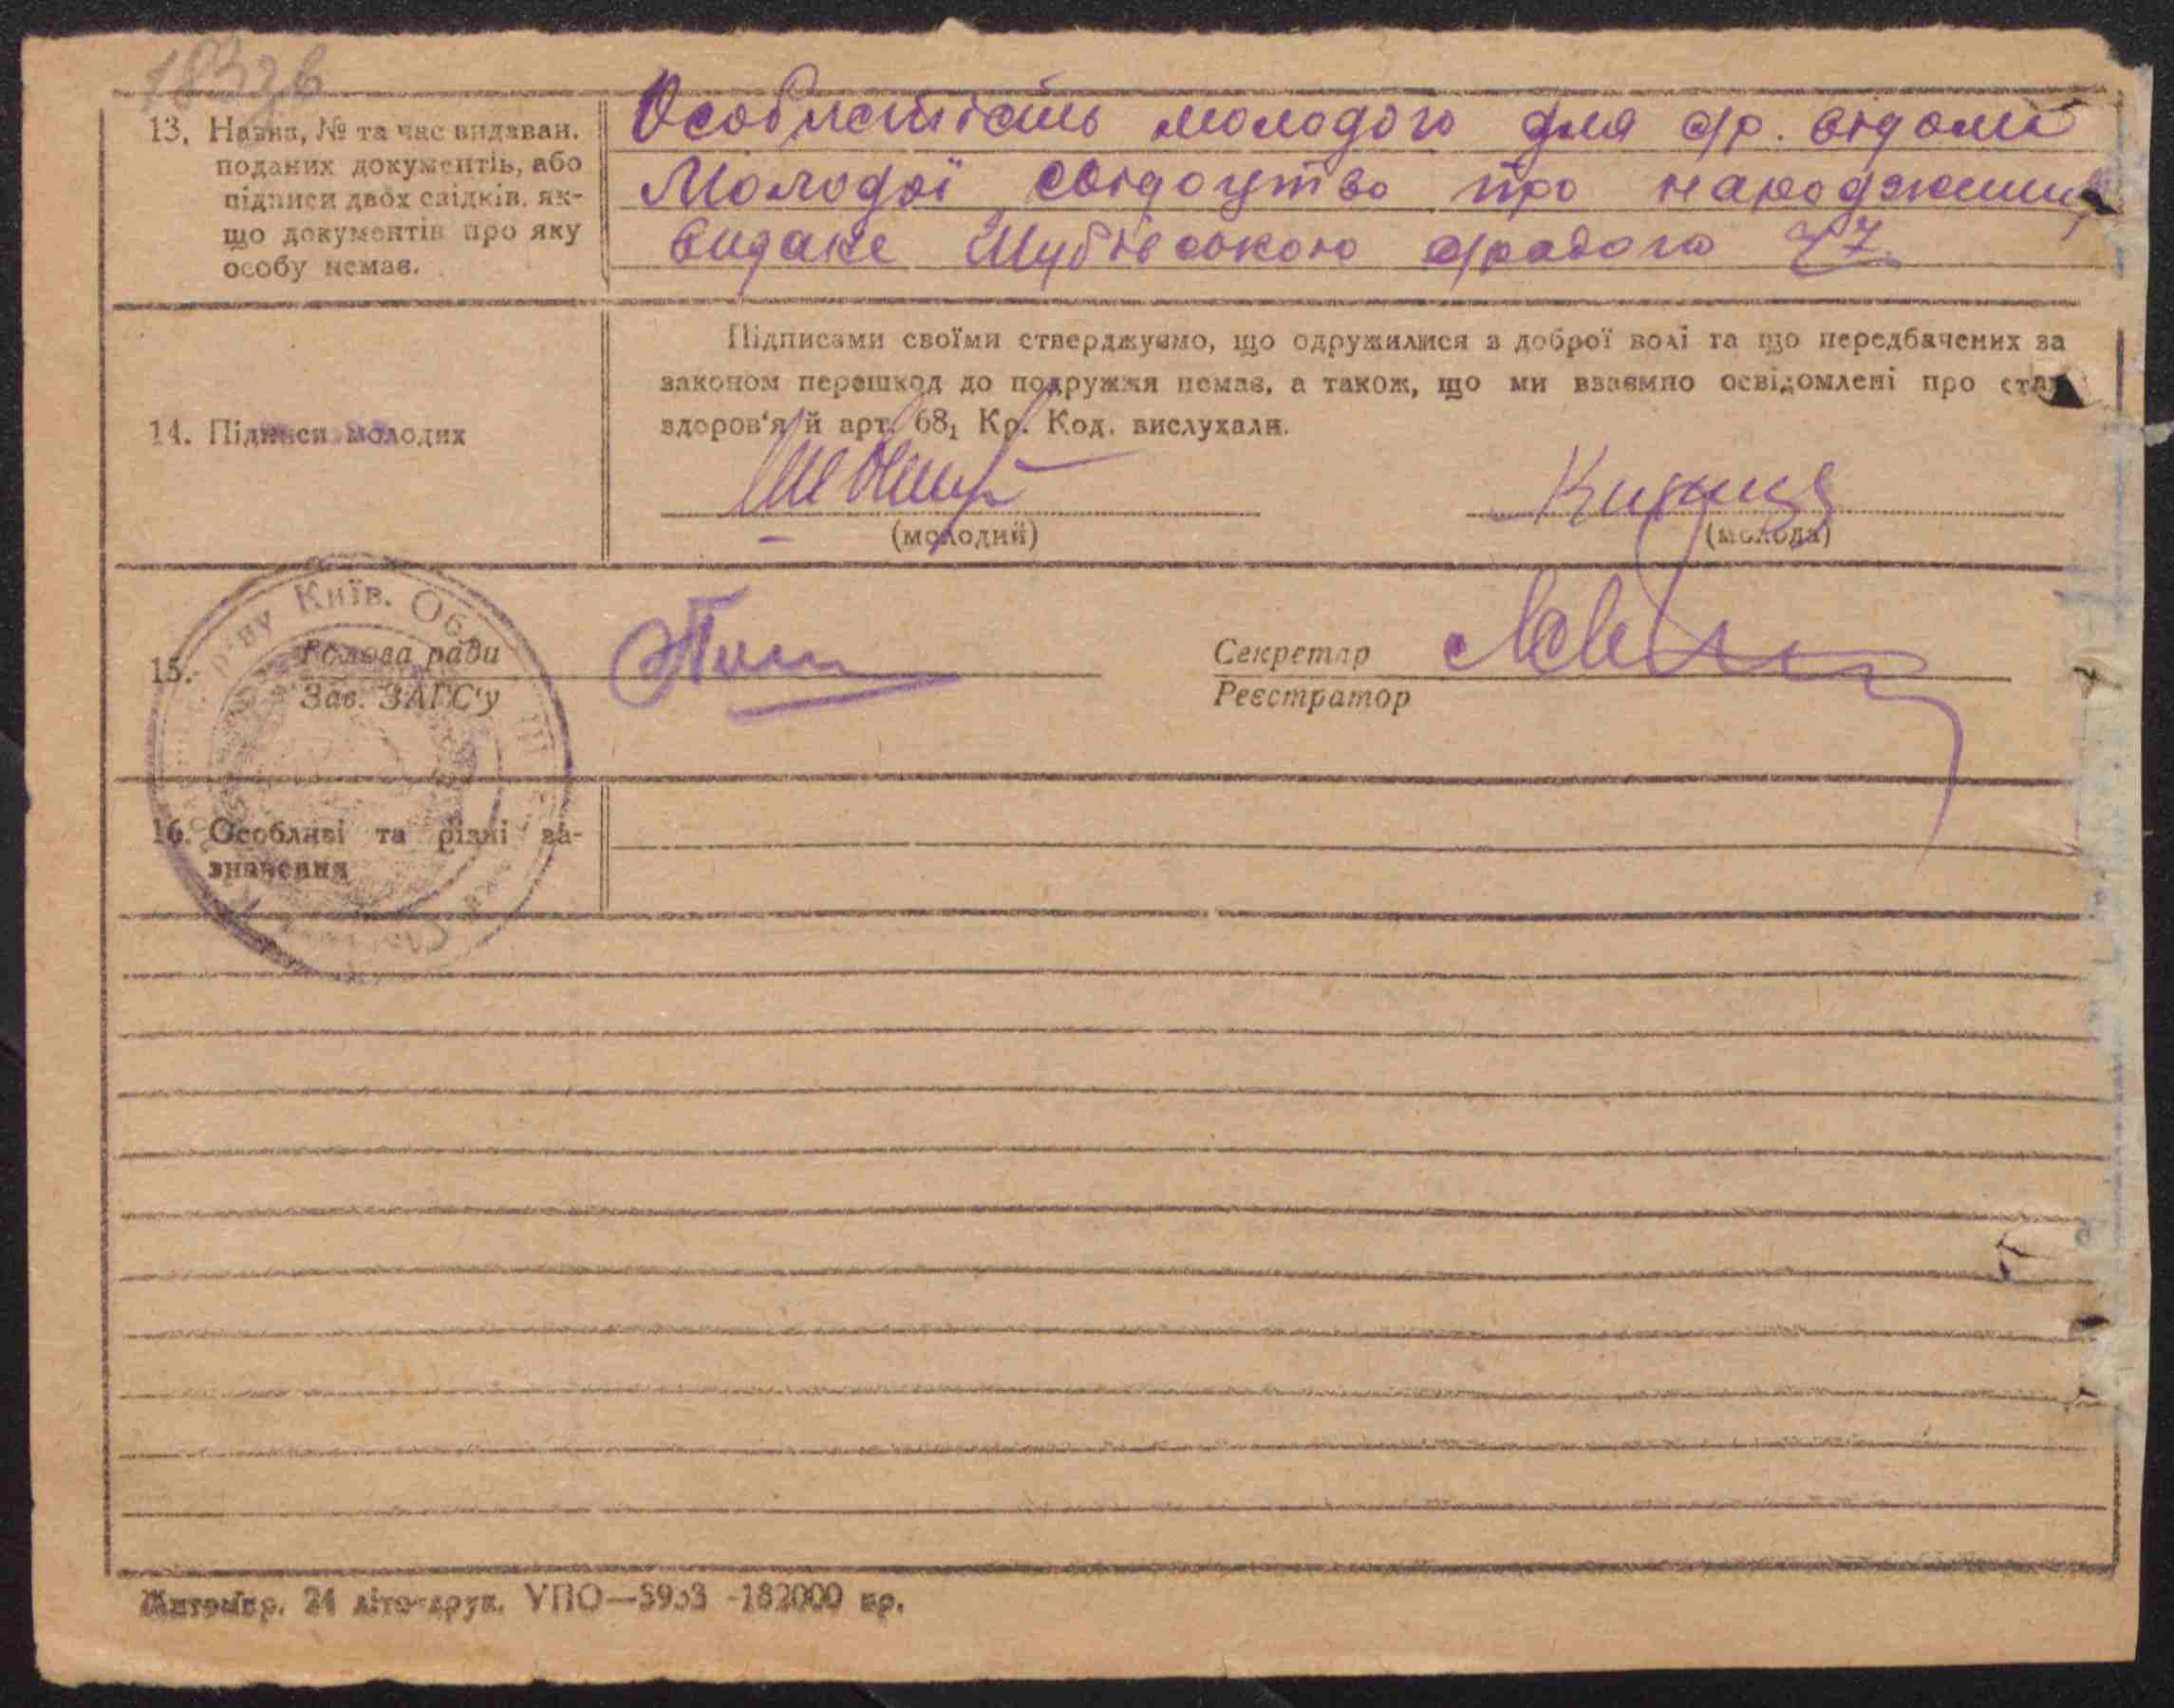 183зв
13. Назва, № та час видаван.
поданих документів, або
підписи двох свідків, як-
що документів про яку
особу немає.
Особистість молодого для с/р. відомі
Молодої свідоцтво про народження,
видане Шубівською с/радою
14. Підписи молодих
Підписами своїми стверджуємо, що одружилися з доброї волі та що передбачених за
законом перешкод до подружжя немає, а також, що ми взаємно освідомлені про стан
здоров'я й арт. 68₁ Кр. Код. вислухали.
(молодий)
(молода)
15. Голова ради
Зав. ЗАГС'у
Секретар
Реєстратор
р-ну Київ. Обл.
16. Особливі та різні за-
значення
Житомир. 24 літо-друк. УПО—3953 -182000 пр.